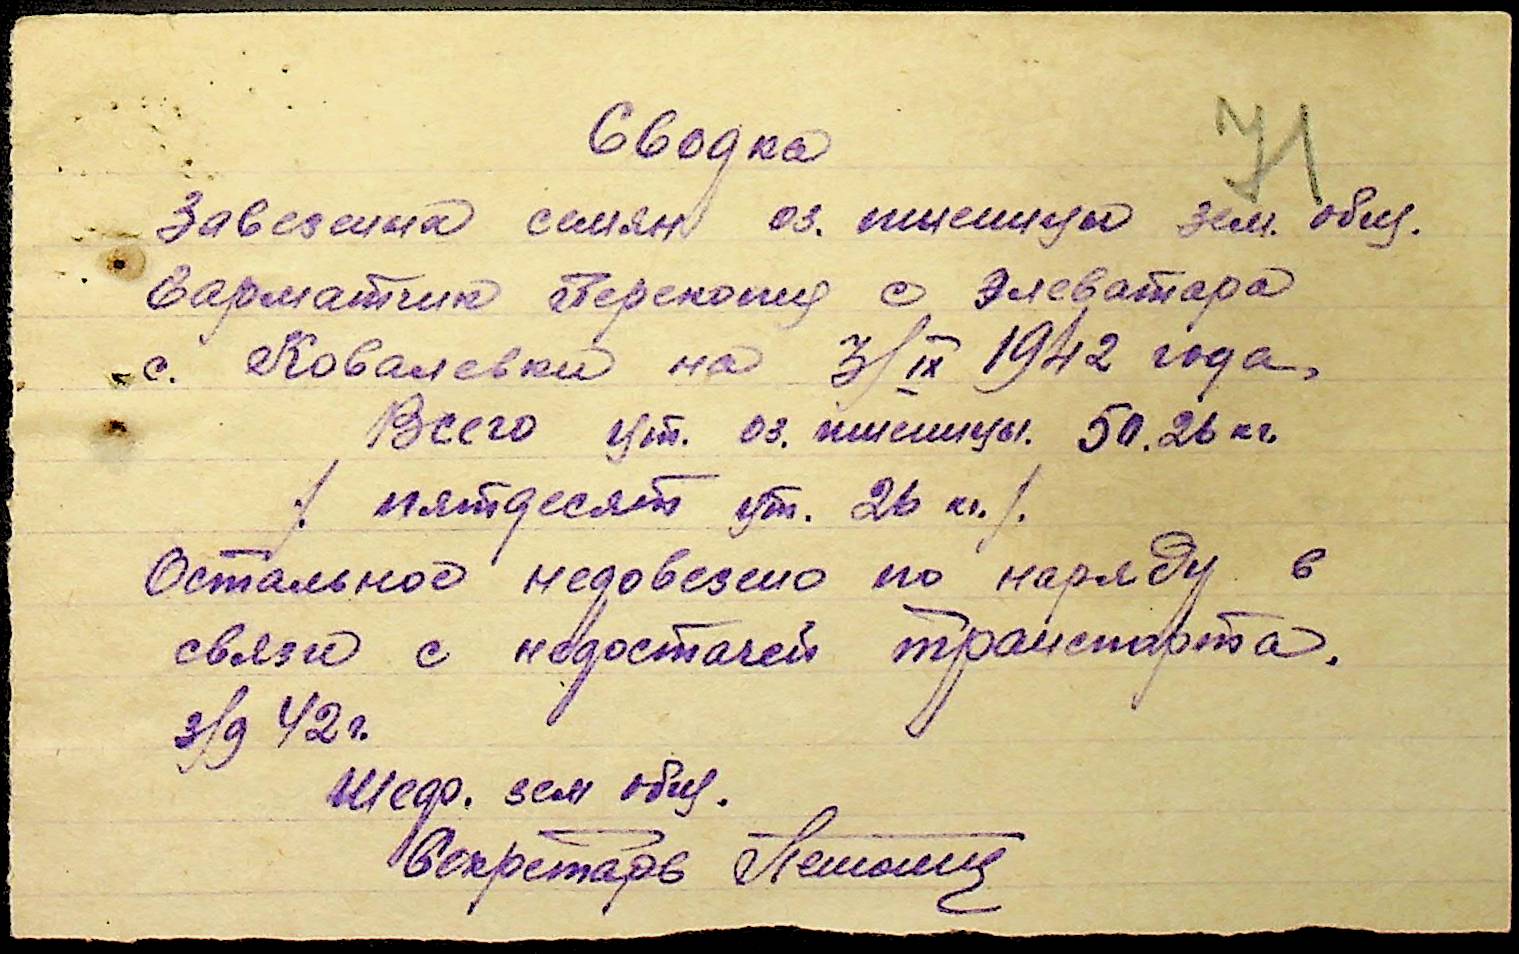 Сводка
71
Завезенна семян оз. пшеницы зем. общ.
Сарматчик Перекопец с Элеватара
с. Ковалевки на 3/IX 1942 года.
Всего цт. оз. пшеницы. 50.26 кг.
/ пятдесят цт. 26 кг. /.
Остальное недовезено по наряду в
связи с недостачей транспарта.
3/9 42 г.
зем общ.
Секретарь